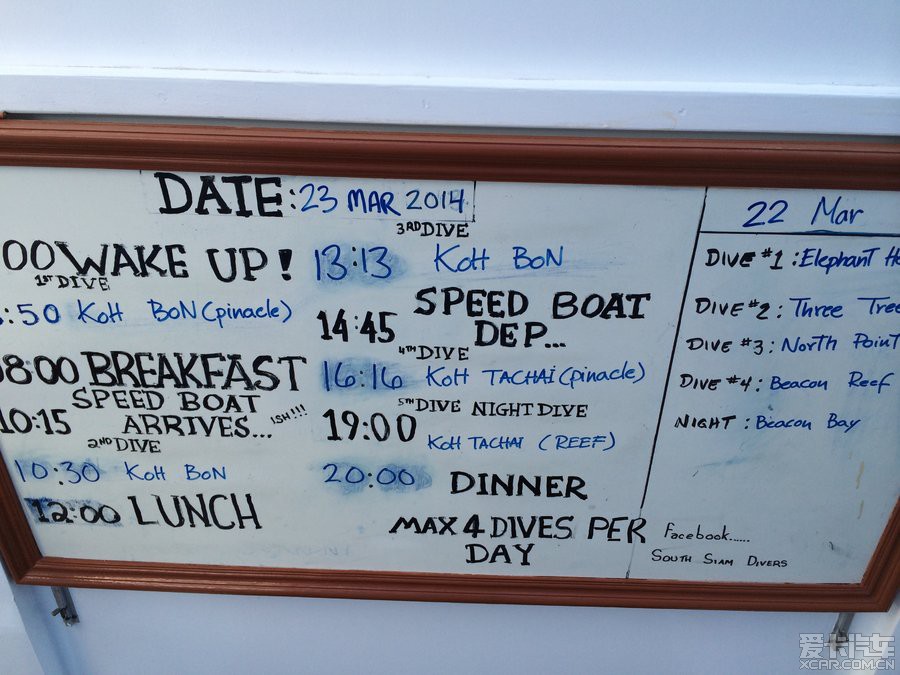 DATE: 23 MAR 2014
:00 WAKE UP!
1ST DIVE
:50 KOH BON (pinacle)
08:00 BREAKFAST
SPEED BOAT
10:15 ARRIVES... ISH!!!
2ND DIVE
10:30 KOH BON
12:00 LUNCH
3RD DIVE
13:13 KOH BON
SPEED BOAT
14:45 DEP...
4TH DIVE
16:16 KOH TACHAI (pinacle)
5TH DIVE NIGHT DIVE
19:00 KOH TACHAI (REEF)
20:00 DINNER
MAX 4 DIVES PER
DAY
22 Mar
DIVE #1: Elephant
DIVE #2: Three Tree
DIVE #3: North Point
DIVE #4: Beacon Reef
NIGHT: Beacon Bay
Facebook......
SOUTH SIAM DIVERS
爱卡汽车
XCAR.COM.CN